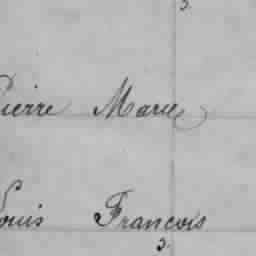 3.
Pierre Marie
Louis Francois
3.